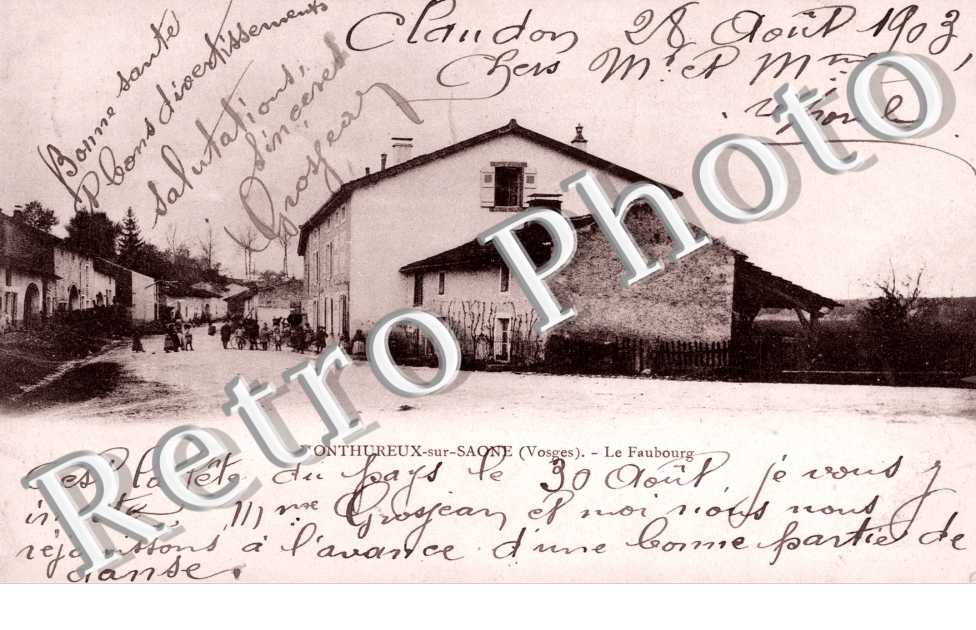 Claudon 28 Août 1903,
Chers Mr. et Mme
Bonne santé
bons divertissements
salutations,
sincères
Grosjean
Retro Photo
MONTHUREUX-sur-SAONE (Vosges). - Le Faubourg
C'est la fête du pays le 30 Août, je vous y
invite, Mme Grosjean et moi nous nous
réjouissons à l'avance d'une bonne partie de
danse.